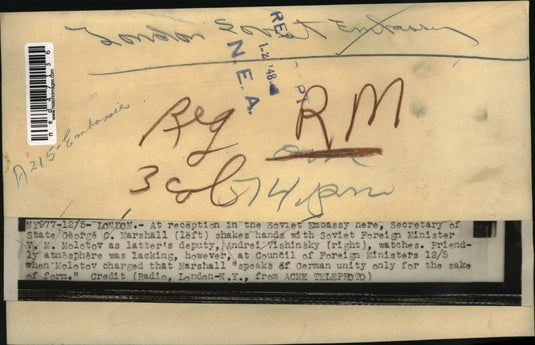 London Soviet Embassy
REF
1-2-'48
N.E.A.
A215-Embassies
Reg RM
3 col
NY977-12/5- LONDON.- At reception in the Soviet Embassy here, Secretary of
State George C. Marshall (left) shakes hands with Soviet Foreign Minister
V. M. Molotov as latter's deputy, Andrei Vishinsky (right), watches. Friend-
ly atmosphere was lacking, however, at Council of Foreign Ministers 12/5
when Molotov charged that Marshall "speaks of German unity only for the sake
of form." Credit (Radio, London-N.Y., from ACME TELEPHOTO)